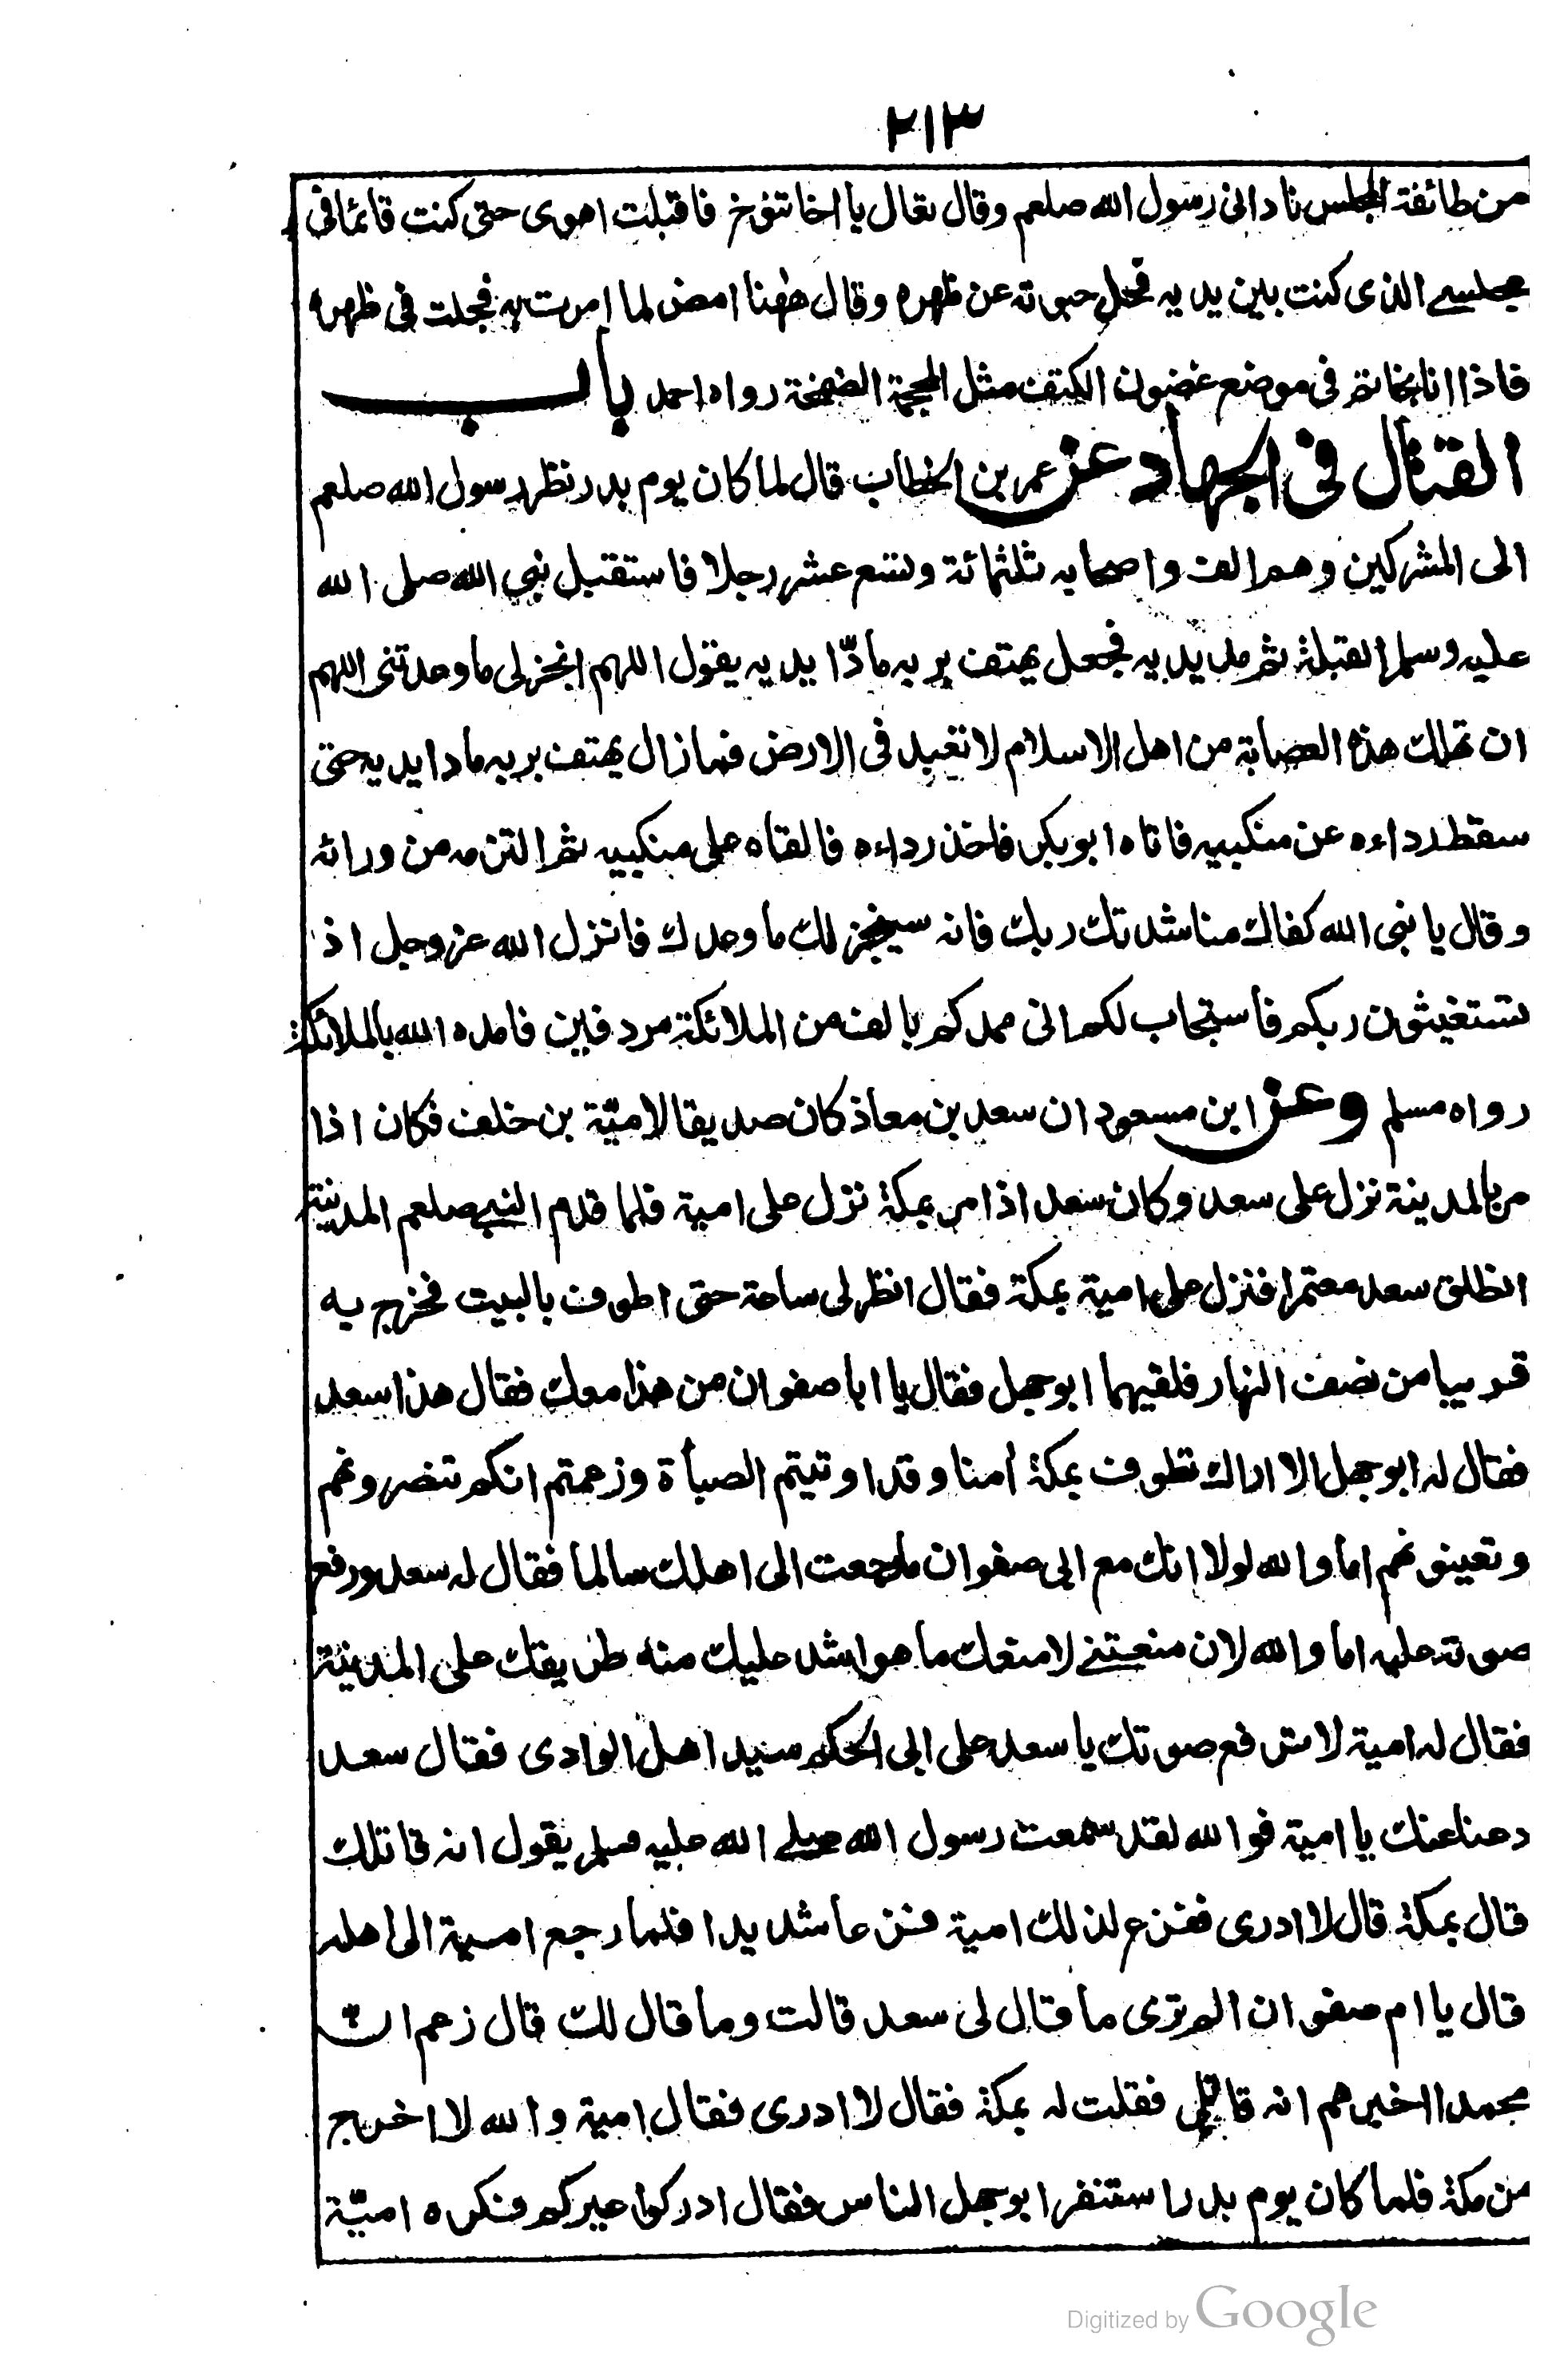 ٢١٣
من طائفة المجلس نادانى رسول الله صلعم وقال تعال يا اخا تنوخ فاقبلت اهوى حتى كنت قائما فى
مجلسے الذى كنت بين يديه فحل حبوته عن ظهره وقال ههنا امض لما امرت به فجلت فى ظهره
فاذا انا بخاتم فى موضع غضون الكتف مثل المحجمة الضخمة رواه احمد باب
القتال فى الجهاد عن عمر بن الخطاب قال لما كان يوم بدر نظر رسول الله صلعم
الى المشركين وهم الف واصحابه ثلثمائة وتسع عشر رجلا فاستقبل نبى الله صلى الله
عليه وسلم القبلة ثم مد يديه فجعل يهتف بربه مادّا يديه يقول اللهم انجز لى ما وعدتنى اللهم
ان تهلك هذه العصابة من اهل الاسلام لا تعبد فى الارض فما زال يهتف بربه مادا يديه حتى
سقط رداءه عن منكبيه فاتاه ابو بكر فاخذ رداءه فالقاه على منكبيه ثم التزمه من ورائه
وقال يا نبى الله كفاك مناشدتك ربك فانه سينجز لك ما وعدك فانزل الله عز وجل اذ
تستغيثون ربكم فاستجاب لكم انى ممدكم بالف من الملائكة مردفين فامده الله بالملائكة
رواه مسلم وعن ابن مسعود ان سعد بن معاذ كان صديقا لاميّة بن خلف فكان اذا
مر بالمدينة نزل على سعد وكان سعد اذا مر بمكة نزل على امية فلما قدم النبى صلعم المدينة
انطلق سعد معتمرا فنزل على امية بمكة فقال انظر لى ساعة حتى اطوف بالبيت فخرج به
قريبا من نصف النهار فلقيهما ابو جهل فقال يا ابا صفوان من هذا معك فقال هذا سعد
فقال له ابو جهل الا اراك تطوف بمكة أمنا وقد اوتيتم الصبأة وزعمتم انكم تنصرونهم
وتعينونهم اما والله لولا انك مع ابى صفوان ما رجعت الى اهلك سالما فقال له سعد ورفع
صوته عليه اما والله لان منعتنے لامنعك ما هو اشد عليك منه طريقك على المدينة
فقال له امية لا ترفع صوتك يا سعد على ابى الحكم سيد اهل الوادى فقال سعد
دعنا عنك يا امية فوالله لقد سمعت رسول الله صلے الله عليه وسلم يقول انه قاتلك
قال بمكة قال لا ادرى ففزع لذلك امية فزعا شديدا فلما رجع امية الى اهله
قال يا ام صفوان الم ترى ما قال لى سعد قالت وما قال لك قال زعم انّ
محمدا اخبرهم انه قاتلى فقلت له بمكة فقال لا ادرى فقال امية والله لا اخرج
من مكة فلما كان يوم بدر استنفر ابو جهل الناس فقال ادركوا عيركم فنكره اميّة
Digitized by Google